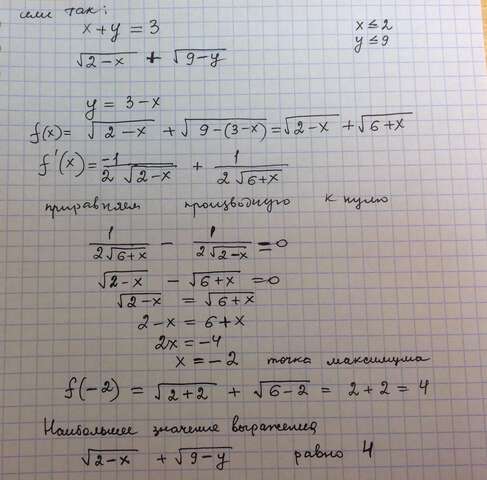 или так:
x + y = 3
x ≤ 2
y ≤ 9
√(2-x) + √(9-y)
y = 3-x
f(x) = √(2-x) + √(9-(3-x)) = √(2-x) + √(6+x)
f'(x) = -1/(2√(2-x)) + 1/(2√(6+x))
приравняем производную к нулю
1/(2√(6+x)) - 1/(2√(2-x)) = 0
√(2-x) - √(6+x) = 0
√(2-x) = √(6+x)
2-x = 6+x
2x = -4
x = -2 точка максимума
f(-2) = √(2+2) + √(6-2) = 2+2 = 4
Наибольшее значение выражения
√(2-x) + √(9-y) равно 4